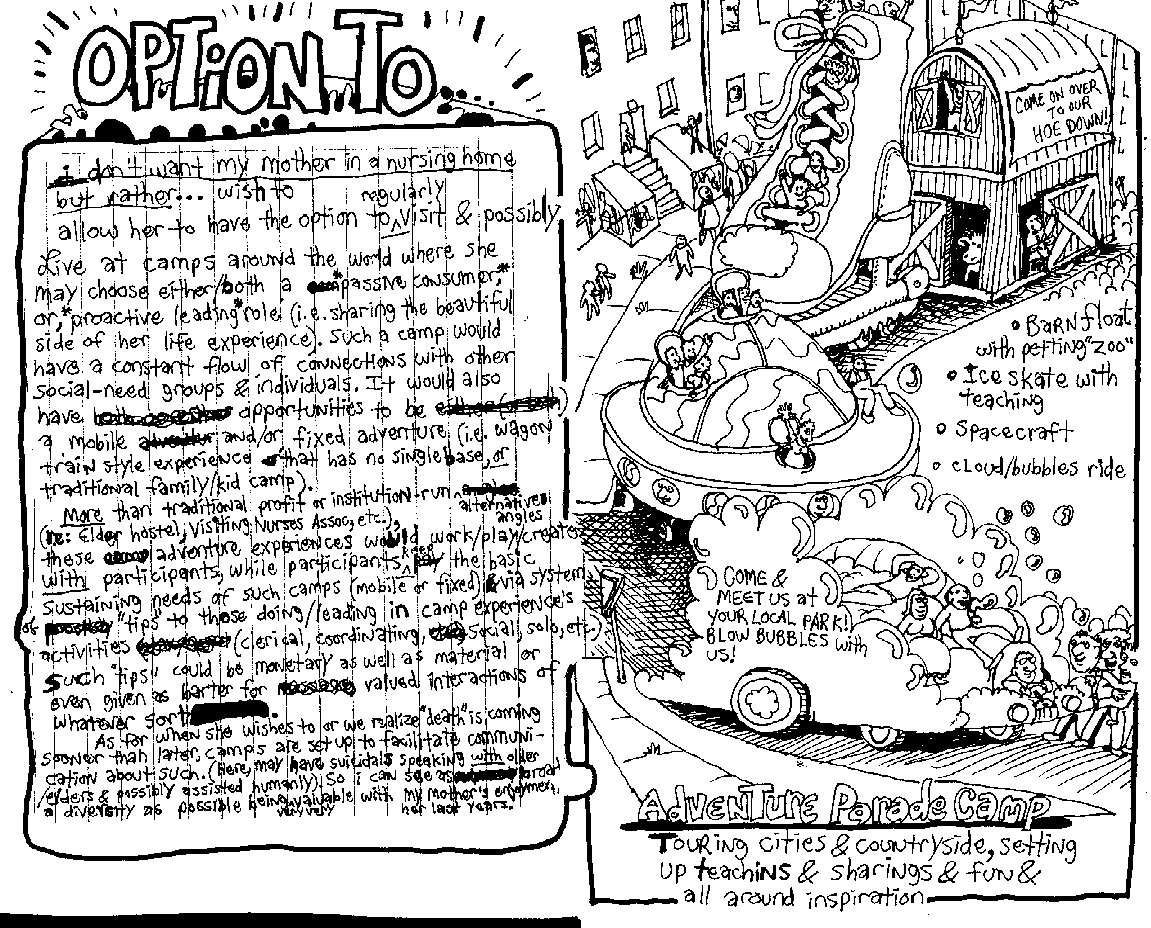 OPTION TO...
i don't want my mother in a nursing home
but rather... wish to regularly
allow her to have the option to visit & possibly
Live at camps around the world where she
may choose either/both a "passive consumer,"
or, "proactive leading" role (i.e. sharing the beautiful
side of her life experience). Such a camp would
have a constant flow of connections with other
social-need groups & individuals. It would also
have opportunities to be
a mobile and/or fixed adventure (i.e. wagon
train style experience that has no single base, or
traditional family/kid camp).
More than traditional profit or institution-run alternatives angles
(re: Elder hostel, Visiting Nurses Assoc, etc.),
these adventure experiences would work/play/create
with participants, while participants keep the basic
sustaining needs of such camps (mobile or fixed) via system
of "tips" to those doing/leading in camp experience's
activities (clerical, coordinating, social, solo, etc.)
Such "tips" could be monetary as well as material or
even given as barter for valued interactions of
whatever sort.
As for when she wishes to or we realize "death" is coming
sooner than later, camps are set up to facilitate communi-
cation about such. (Here, may have suicidals speaking with older
/elders & possibly assisted humanly). So i can see as broad
a diversity as possible being valuable with my mother's enjoyment,
very very her last years.
COME ON OVER
TO OUR
HOE DOWN!
• Barn float
with petting "zoo"
• Ice skate with
teaching
• Spacecraft
• cloud/bubbles ride
COME &
MEET US at
YOUR LOCAL PARK!
BLOW BUBBLES with
US!
Adventure Parade Camp
Touring cities & countryside, setting
up teachins & sharings & fun &
all around inspiration